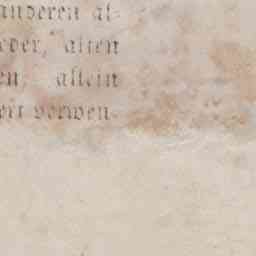 anderen al-
eder, alten
en, allein
ert verwen-